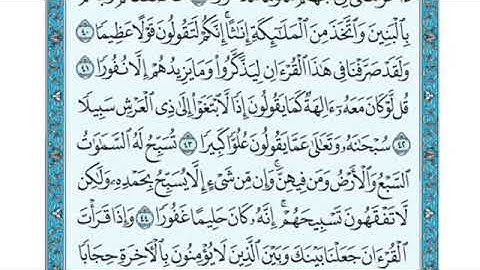 بِٱلْبَنِينَ وَٱتَّخَذَ مِنَ ٱلْمَلَٰٓئِكَةِ إِنَٰثًاۚ إِنَّكُمْ لَتَقُولُونَ قَوْلًا عَظِيمًا ٤٠
وَلَقَدْ صَرَّفْنَا فِى هَٰذَا ٱلْقُرْءَانِ لِيَذَّكَّرُوا۟ وَمَا يَزِيدُهُمْ إِلَّا نُفُورًا ٤١
قُل لَّوْ كَانَ مَعَهُۥٓ ءَالِهَةٌ كَمَا يَقُولُونَ إِذًا لَّٱبْتَغَوْا۟ إِلَىٰ ذِى ٱلْعَرْشِ سَبِيلًا
٤٢ سُبْحَٰنَهُۥ وَتَعَٰلَىٰ عَمَّا يَقُولُونَ عُلُوًّا كَبِيرًا ٤٣ تُسَبِّحُ لَهُ ٱلسَّمَٰوَٰتُ
ٱلسَّبْعُ وَٱلْأَرْضُ وَمَن فِيهِنَّۚ وَإِن مِّن شَىْءٍ إِلَّا يُسَبِّحُ بِحَمْدِهِۦ وَلَٰكِن
لَّا تَفْقَهُونَ تَسْبِيحَهُمْۗ إِنَّهُۥ كَانَ حَلِيمًا غَفُورًا ٤٤ وَإِذَا قَرَأْتَ
ٱلْقُرْءَانَ جَعَلْنَا بَيْنَكَ وَبَيْنَ ٱلَّذِينَ لَا يُؤْمِنُونَ بِٱلْءَاخِرَةِ حِجَابًا